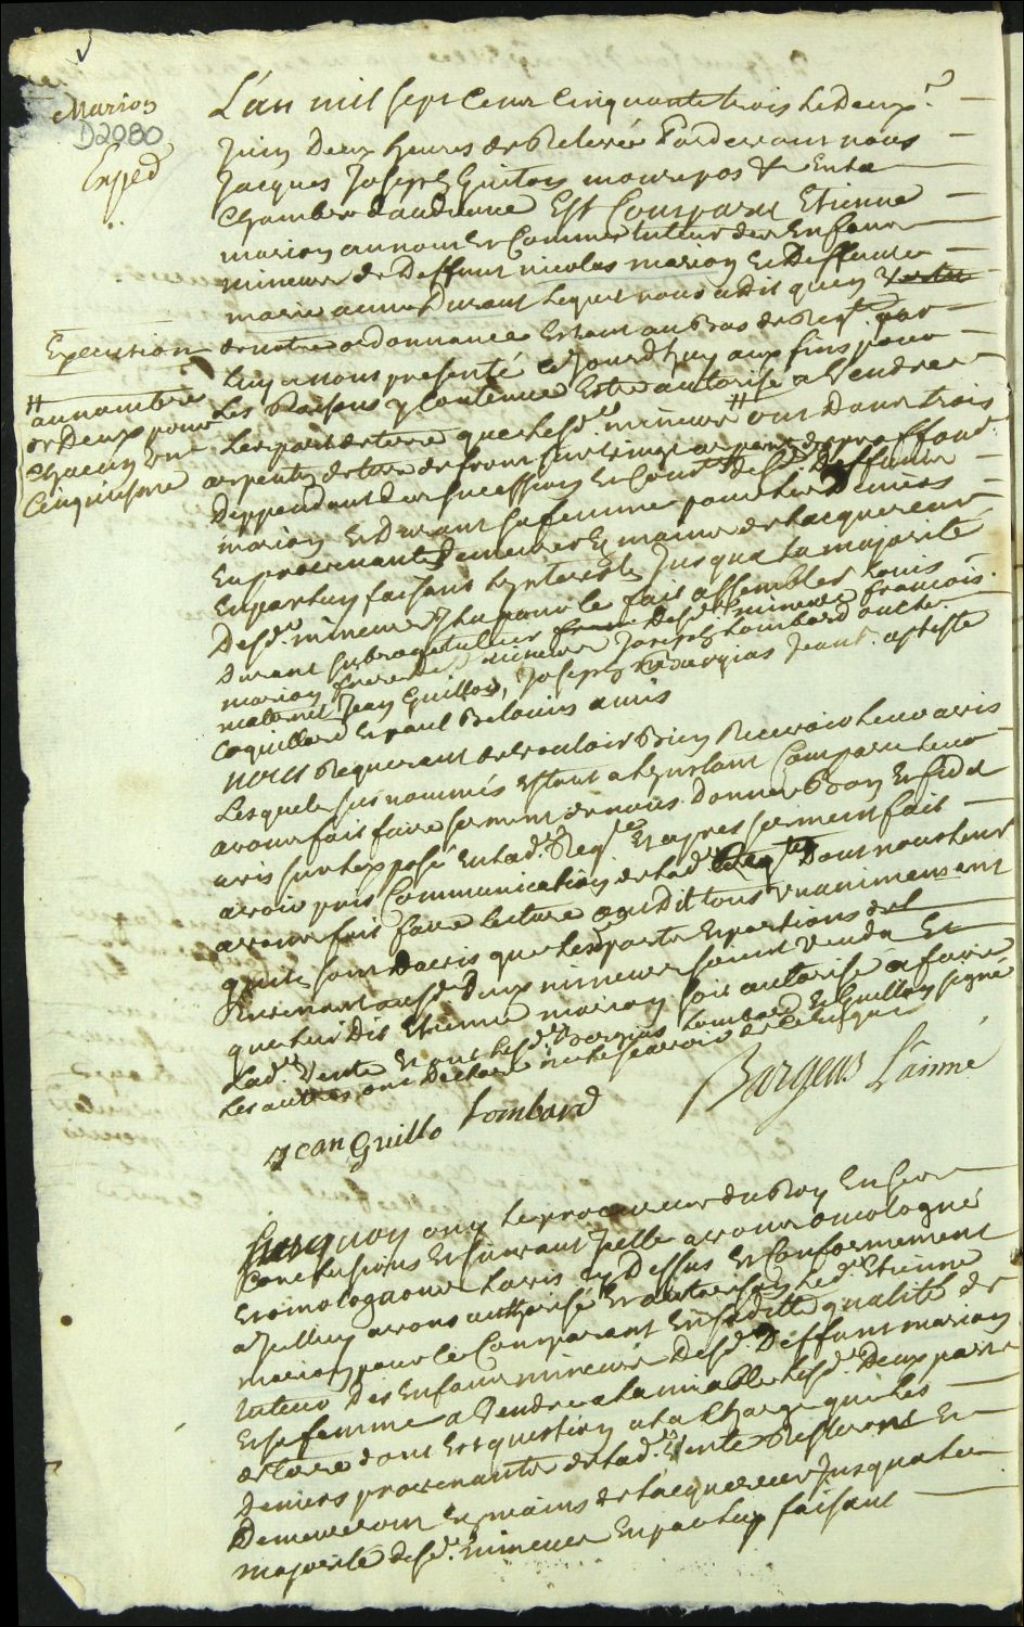 Marion
D2080
Exped
L'an mil sept cent cinquante trois le deux.e
Juin deux heures de Relevée Pardevant nous
Jacques Joseph Guiton monrepos &c En la
Chambre d'audience Est Comparu Etienne
marion au nom Et Comme tuteur des Enfans
mineurs de Deffunt nicolas marion Et Deffunte
marie anne Durant Lequel nous a dit qu'en
Execution de notre ordonnance Estant au bas de Req.te par
Luy a nous presenté ce Jourdhuy aux fins pour
# au nombre
de Deux pour
chacun un
Cinquiesme
Les Raisons y Contenues Estre autorisé a Vendre
Les parts de terre que Lesd. mineurs # ont Dans trois
arpents de terre de front sur vingt arpens de proffond.
Deppendant des successions Desd. Deffunts
marion Et Durant sa femme pour Les Deniers
En provenants Demeurer Es mains de Lacquereur
En par Luy faisant L'interest Jusqua La majorité
Desd. mineurs Il a pour le fait assembler Louis
Durant subrogé tuteur Desd. mineurs François
marion frere Desd. mineurs Joseph Lombard oncle
maternel Jean Guillot, Joseph Bargias Jean B.aptiste
Coquillard Et paul Belouin amis
nous Requerant de Vouloir Bien Recevoir Leur avis
Lesquels susnommés Estant a L'instant Comparu Leur
avons fait faire serment de nous Donner Bon Et fidel
avis sur L'exposé En Lad. Req.te Et apres serment fait
avoir pris Communication de Lad. Req.te Dont nous Leur
avons fait faire Lecture ont Dit tous unanimement
qu'ils sont D'avis que Lesd. parts Et portions de
Revenant ausd. Deux mineurs soient Vendu Et
que Led. Etienne marion soit autorisé a faire
Lad. Vente Et ont Lesd. Bargias Lombard Et Guillot signé
Les autres ont Declaré ne le sçavoir de ce Enquis
Jean Guillo Lombard Bargeas L'ainné
Surquoy ouy Le procureur du Roy En ses
Conclusions Et suivant Icelle avons omologué
Et omologuons L'avis cy Dessus Et Conformement
a Iceluy avons authorisé Et autorisons Led. Etienne
marion pour ce Comparant En saditte qualité de
tuteur Des Enfans mineurs Desd. Deffunt marion
Et sa femme a Vendre a L'amiable Lesd. Deux parts
de terre dont Est question a La Charge que Les
Deniers provenants de Lad. Vente Resteront Et
Demeureront Es mains de L'acquereur Jusqua La
majorité desd. mineurs En par Luy faisant